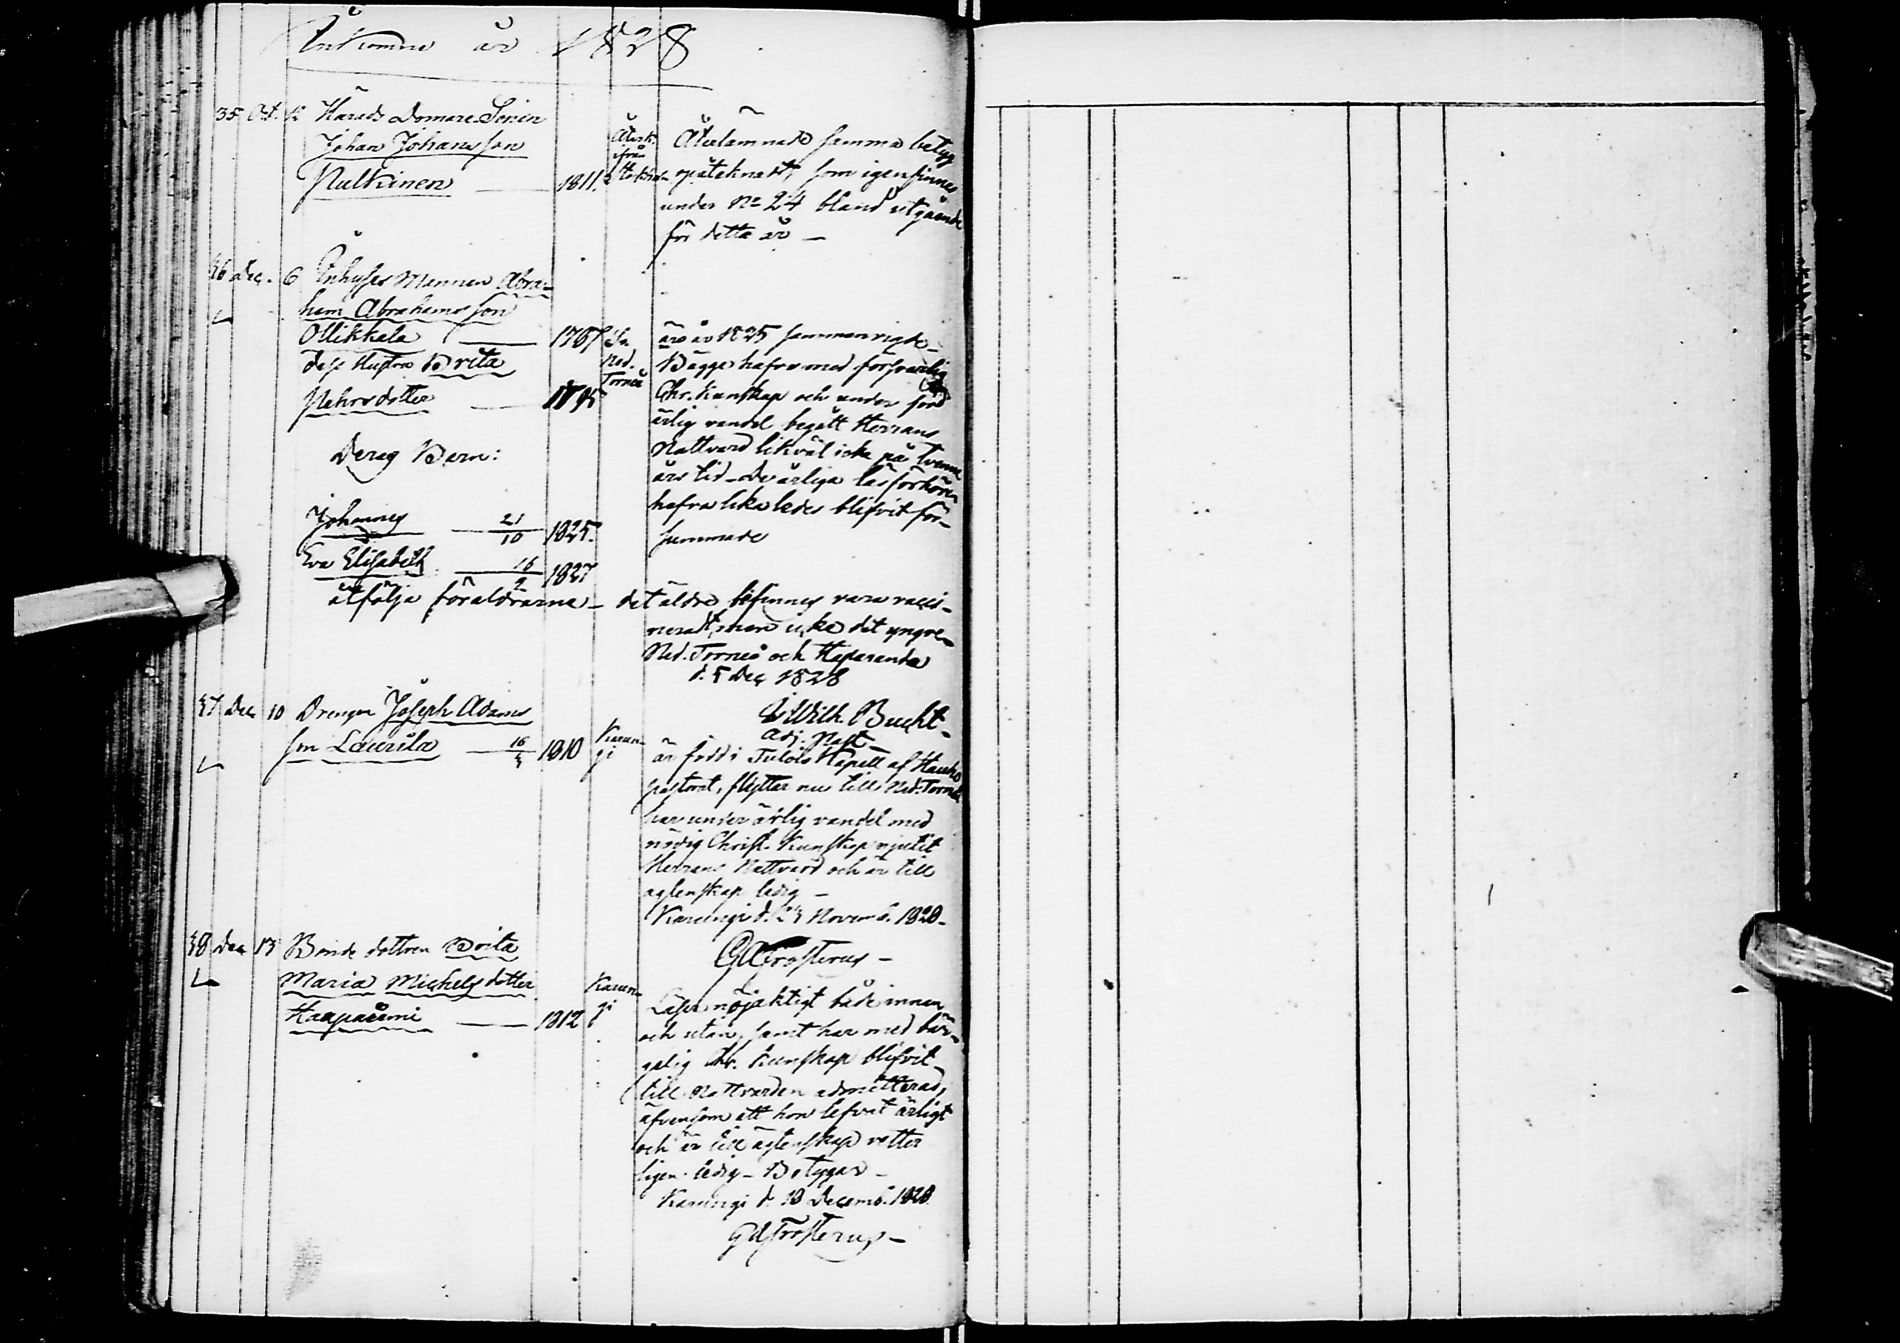 Ankomne år 1828
35 Oct. 12 Härads Domare Sonen
Johan Johansson
Pulkinen — 1811.
Återk. ifrån
Återlämnade samma betyg
opåteknadt, som igenfinnes
under No 24 bland utgående
för detta år —
36 Dec. 6 Inhyses Mannen Abra-
ham Abrahamsson
Ollikkala — 1787
Dess Hustru Brita
Pehrsdotter — 1795
Ned.
Torneå
äro år 1825 sammanvigde —
Bägge hafva med försvarlig
Chr. Kunskap och under
ärlig vandel begått Herrans
Nattvard likväl icke på tvenne
års tid — De årliga läsförhören
hafva likaledes blifvit för-
summade
Deras Barn:
Johannes — 21/10 1825.
Eva Elisabeth — 16/2 1827
åtfölja föräldrarna — det äldre befinnes vara vacci-
neradt, men icke det yngre —
Ned. Torneå och Haparanda
d. 5 Dec 1828
Wilh Bucht
Adj. Past —
37 Dec 10 Drengen Joseph Adams
son Laurila — 1810
Karun-
gi
är född i Tulois Kapell af Hauho
pastorat, flyttar nu till Ned. Torneå
har under ärlig vandel med
nödig Christ. Kunskap njutit
Herrans Nattvard och är till
ägtenskap ledig —
Karungi d. 24 Novemb. 1828 —
G A Frosterus —
38 Dec 13 Bonde dottren Brita
Maria Michelsdotter
Haapaniemi — 1812
Karun-
gi
Läser nöjaktigt både innan
och utan, samt har med bär-
gelig Chr. Kunskap blifvit
till Nattvarden admitterad,
äfvensom att hon lefvat ärligt
och är till ägtenskap vetter
ligen ledig — Betygar —
Karungi d. 13 Decemb. 1828
G A Frosterus —